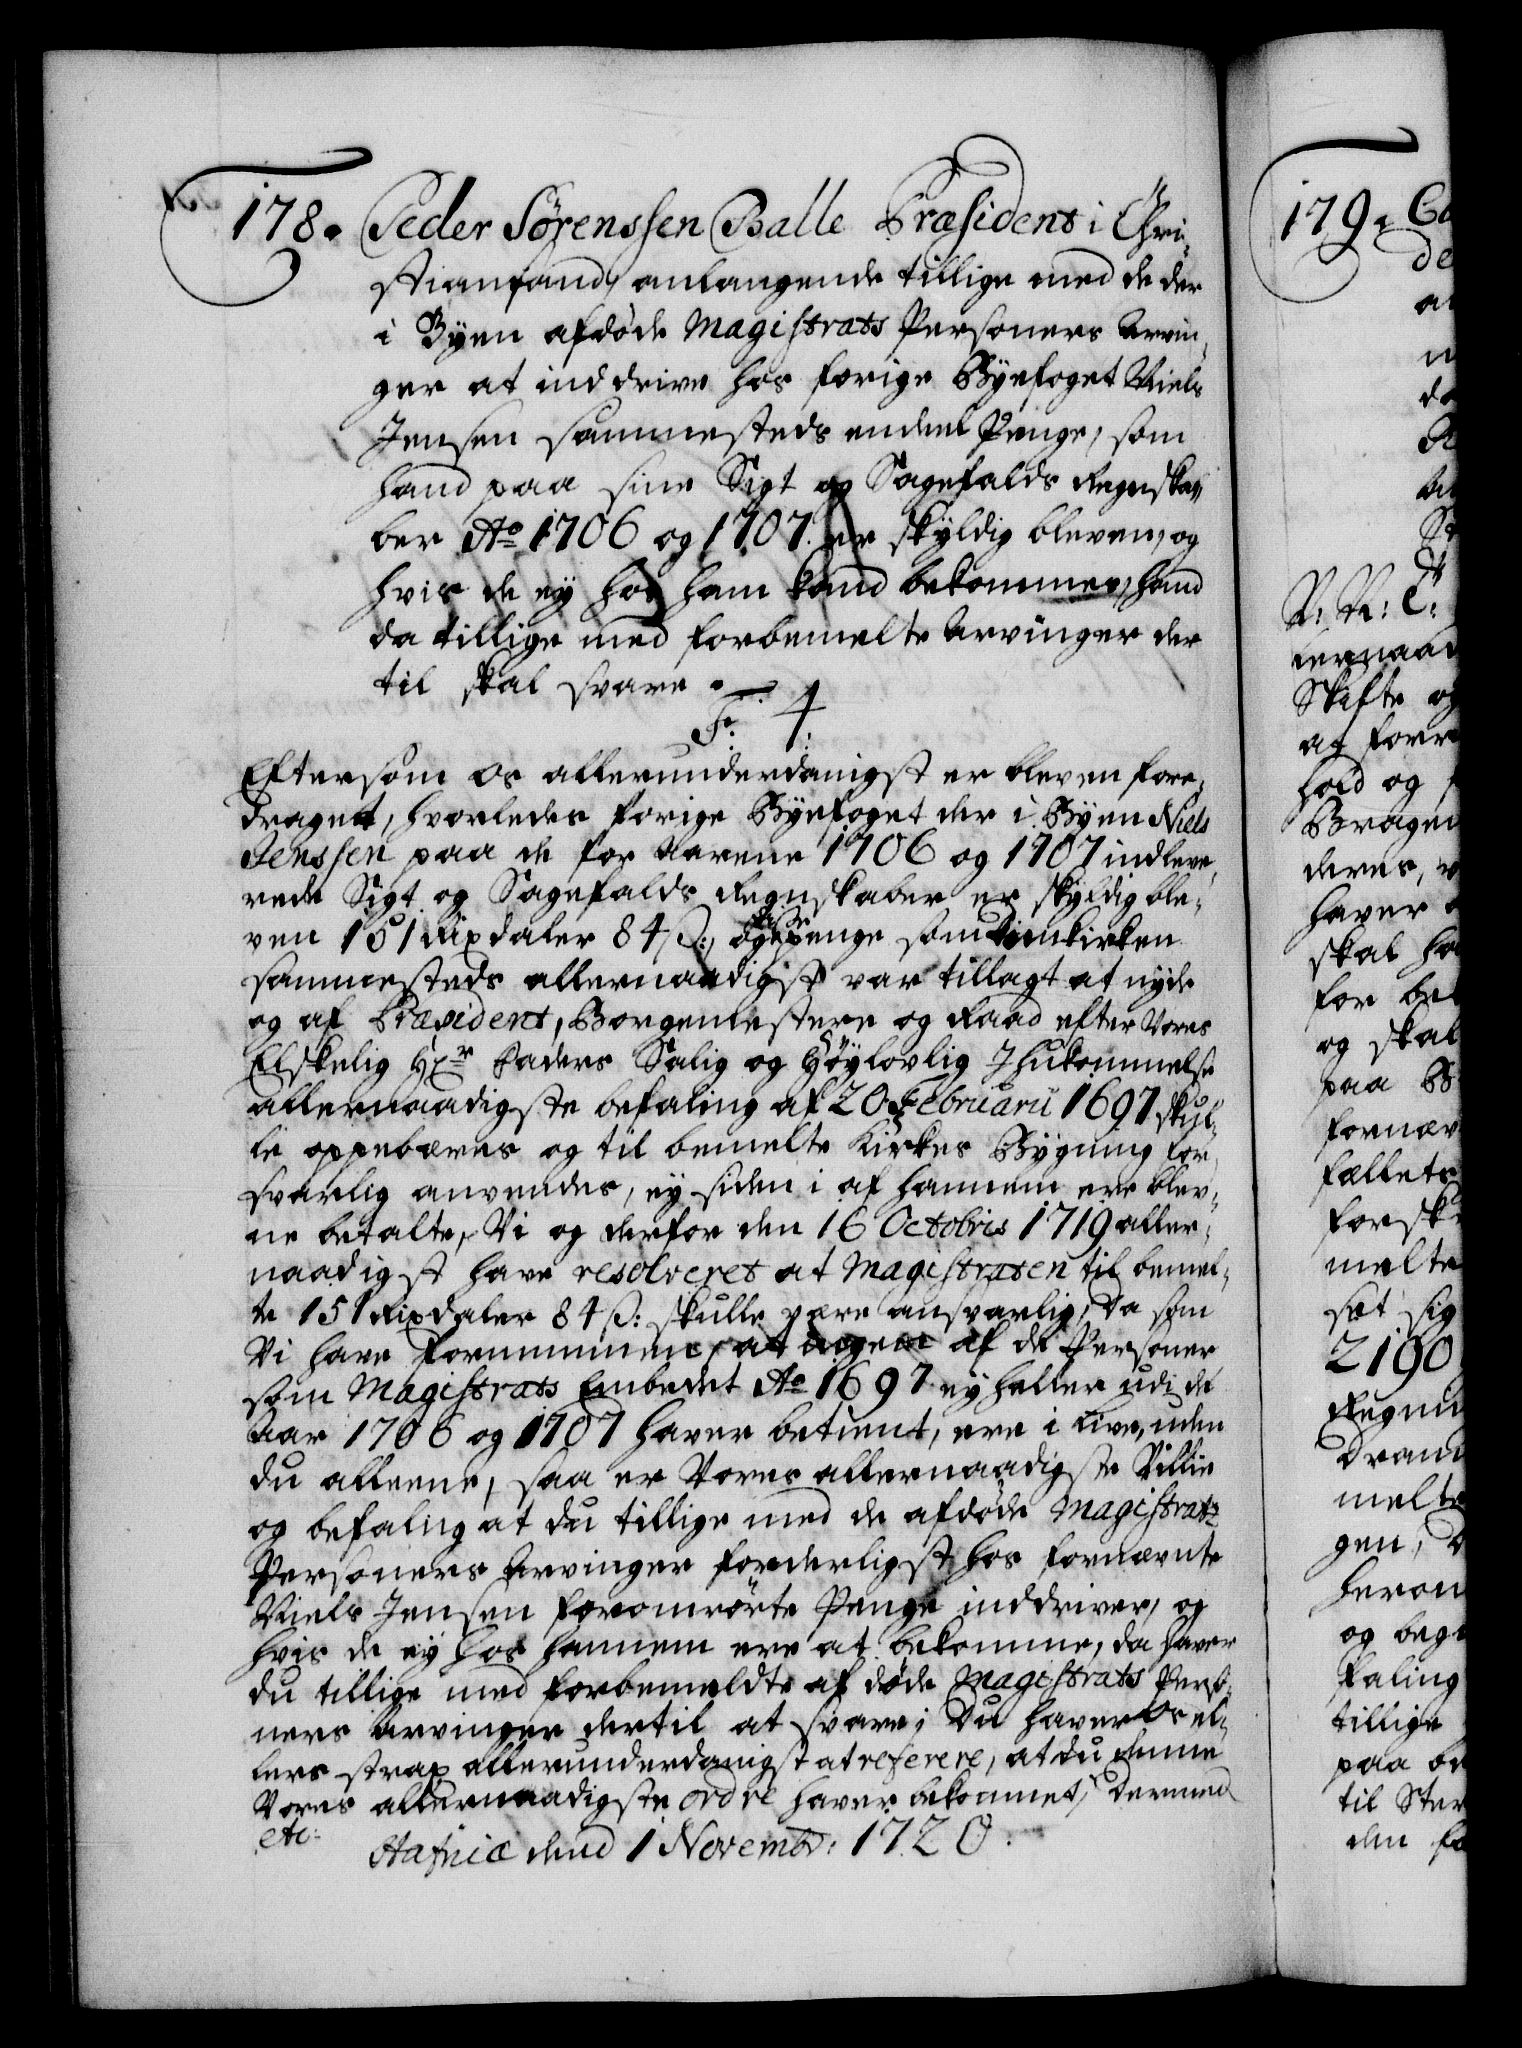 178. Peder Sørenssen Balle Præsident i Chri-
stiansand, anlangende tillige med de der
i Byen afdøde Magistrats Personers Arvin-
ger at inddrive hos forige Byefoget Niels
Jensen sammesteds endeel Penge, som
hand paa sine Sigt og Sagefalds Regnska-
ber Ao 1706 og 1707. er skyldig bleven, og
hvis de ey hos ham kand bekommes, hand
da tillige med forbemelte Arvinger der
til skal svare.
F. 4.
Eftersom os allerunderdanigst er bleven fore-
draget, hvorledes forige Byefoget der i Byen Niels
Jenssen paa de for Aarene 1706 og 1707 indleve-
rede Sigt og Sagefalds Regnskaber er skyldig ble-
ven 151 Rixdaler 84 ß:, og disse penge som Domkirken
sammesteds allernaadigst var tillagt at nyde
og af Præsident, Borgemestere og Raad efter Vores
Elskelig Hr Faders Salig og Høylovlig Ihukommelse
allernaadigste befaling af 20 Februarii 1697 skul-
le oppebæres og til bemelte Kirkes Bygning for-
svarlig anvendes, ey siden i af hannem ere blev-
ne betalte, Vi og derfor den 16 Octobris 1719 aller-
naadigst have resolveret at Magistraten til bemel-
te 151 Rixdaler 84 ß: skulle være ansvarlig, Da som
Vi have fornummen, at ingen af de Personer
som Magistrats Embedet Ao 1697 ey heller udi de
Aar 1706 og 1707 haver betient, ere i Live, uden
du alleene, saa er Vores allernaadigste Villie
og befaling at du tillige med de afdøde Magistrats
Personers Arvinger forderligst hos fornævnte
Niels Jensen foromrørte Penge inddriver, og
hvis de ey hos hannem ere at bekomme, da haver
du tillige med forbemeldte af døde Magistrats Perso-
ners Arvinger dertil at svare; Du haver Os el-
lers strax allerunderdanigst at referere, at du denne
Vores allernaadigste ordre haver bekommet, Dermed
etc: Hafniæ dend 1 Novembr: 1720.
179. Co
de
N: N: C:
Skifte og
at forr
hold og
Bragen
deres, v
haver
skal ha
for be
og skal
paa B
fornæv
fællets
forsk
melte
sat sig
2190
Regni
Dram
melte
gen, D
herom
og beg
faling
tillige
paa be
til Ster
den fo